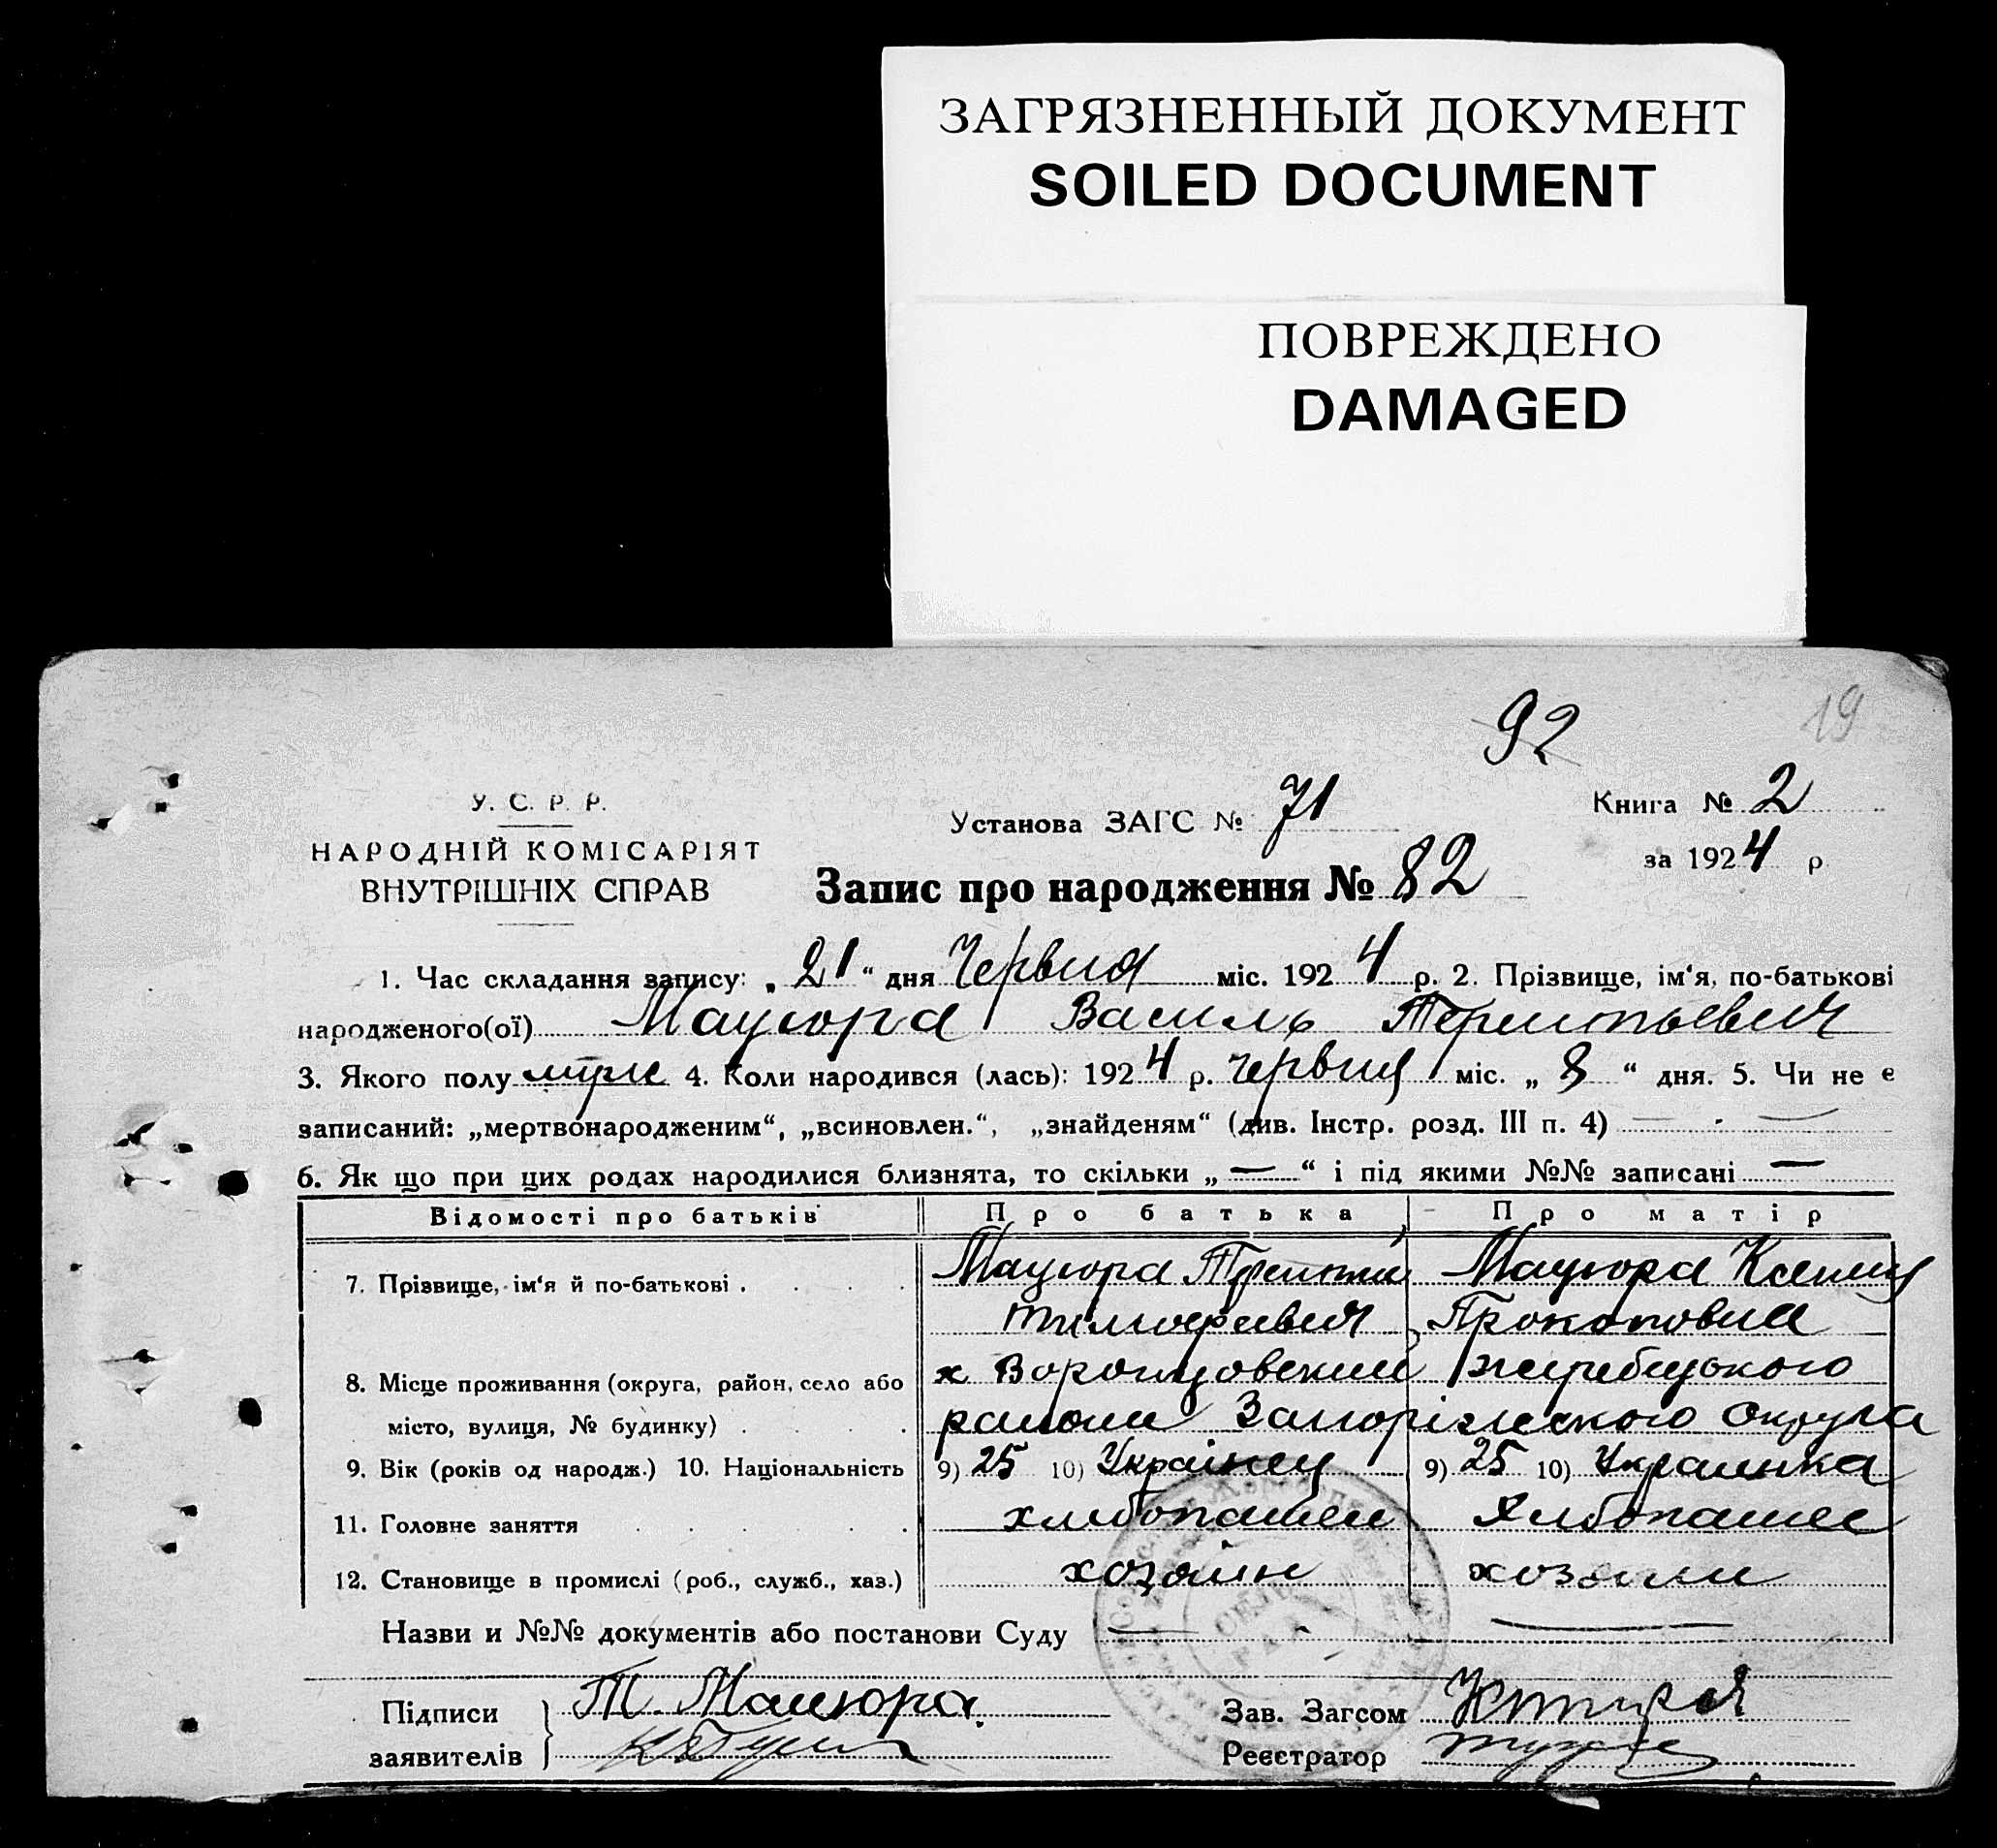 ЗАГРЯЗНЕННЫЙ ДОКУМЕНТ
SOILED DOCUMENT
ПОВРЕЖДЕНО
DAMAGED
92
19
У. С. Р. Р.
НАРОДНІЙ КОМІСАРІЯТ
ВНУТРІШНІХ СПРАВ
Установа ЗАГС № 71
Книга № 2
за 1924 р
Запис про народження № 82
1. Час складання запису: „21“ дня Червня міс. 1924 р. 2. Прізвище, ім‘я, по-батькові
народженого(ої) Мацюра Василь Терентьевич
3. Якого полу муж 4. Коли народився (лась): 1924 р. червня міс. „8“ дня. 5. Чи не є
записаний: „мертвонародженим“, „всиновлен.“, „знайденям“ (див. Інстр. розд. III п. 4) —
6. Як що при цих родах народилися близнята, то скільки „—“ і під якими №№ записані —
Відомості про батьків Про батька Про матір
7. Прізвище, ім‘я й по-батькові . . . . Мацюра Терентий Мацюра Ксения
Тимофеевич Прокоповна
8. Місце проживання (округа, район, село або х Воронцовский жеребецького
місто, вулиця, № будинку) . . . . району Запоріжського округа
9. Вік (років од народж.) 10. Національність 9) 25 10) Украінец 9) 25 10) Украинка
11. Головне заняття . . . . . хлибопашец хлибопашес
12. Становище в промислі (роб., служб., хаз.) хозаїн
Назви и №№ документів або постанови Суду —
Підписи Т. Мацюра. Зав. Загсом
заявителів Реєстратор